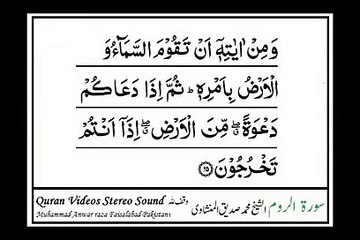 وَ مِنْ اٰیٰتِهٖۤ اَنْ تَقُوْمَ السَّمَآءُ وَ
الْاَرْضُ بِاَمْرِهٖ ؕ ثُمَّ اِذَا دَعَاكُمْ
دَعْوَةً ۖۗ مِّنَ الْاَرْضِ ۖۗ اِذَاۤ اَنْتُمْ
تَخْرُجُوْنَ ۲۵
Quran Videos Stereo Sound وقف للہ
Muhammad Anwar raza Faisalabad Pakistans
سورة الروم الشیخ محمد صدیق المنشاوی